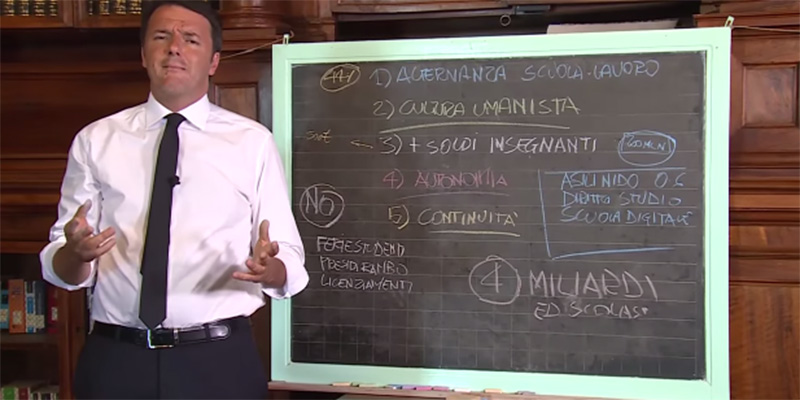 44'
1) ALTERNANZA SCUOLA-LAVORO
2) CULTURA UMANISTA
← 3) + SOLDI INSEGNANTI
4) AUTONOMIA
5) CONTINUITA'
ASILI NIDO 0.6
DIRITTO STUDIO
SCUOLA DIGITALE
NO
FERIE STUDENTI
PRESIDE RAMBO
LICENZIAMENTI
4 MILIARDI
ED. SCOLAS